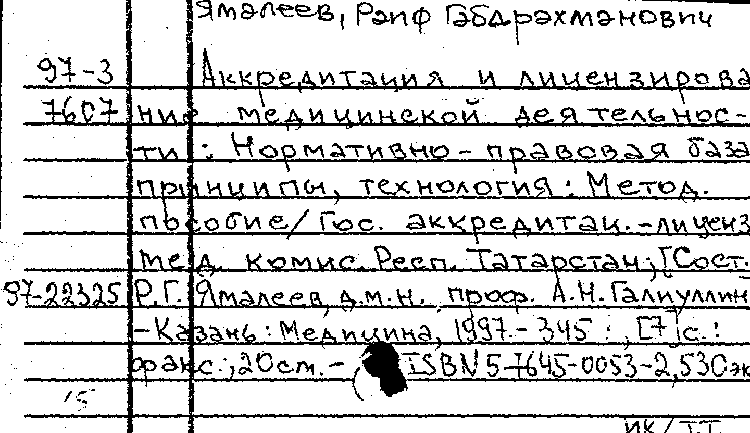 Ямалеев, Раиф Габдрахманович
97-3 Аккредитация и лицензирова
7607 ние медицинской деятельнос-
ти : Нормативно-правовая база
принципы, технология : Метод.
пособие / Гос. аккредитац.-лиценз
мед. комис. Респ. Татарстан; [Сост.
97-22325 Р.Г. Ямалеев, д.м.н. проф. А.Н. Галиуллин
-Казань : Медицина, 1997.- 345 : , [7] с. :
; 20 см. - ISBN 5-7645-0053-2, 530 эк
15
ИК / Т.Т.